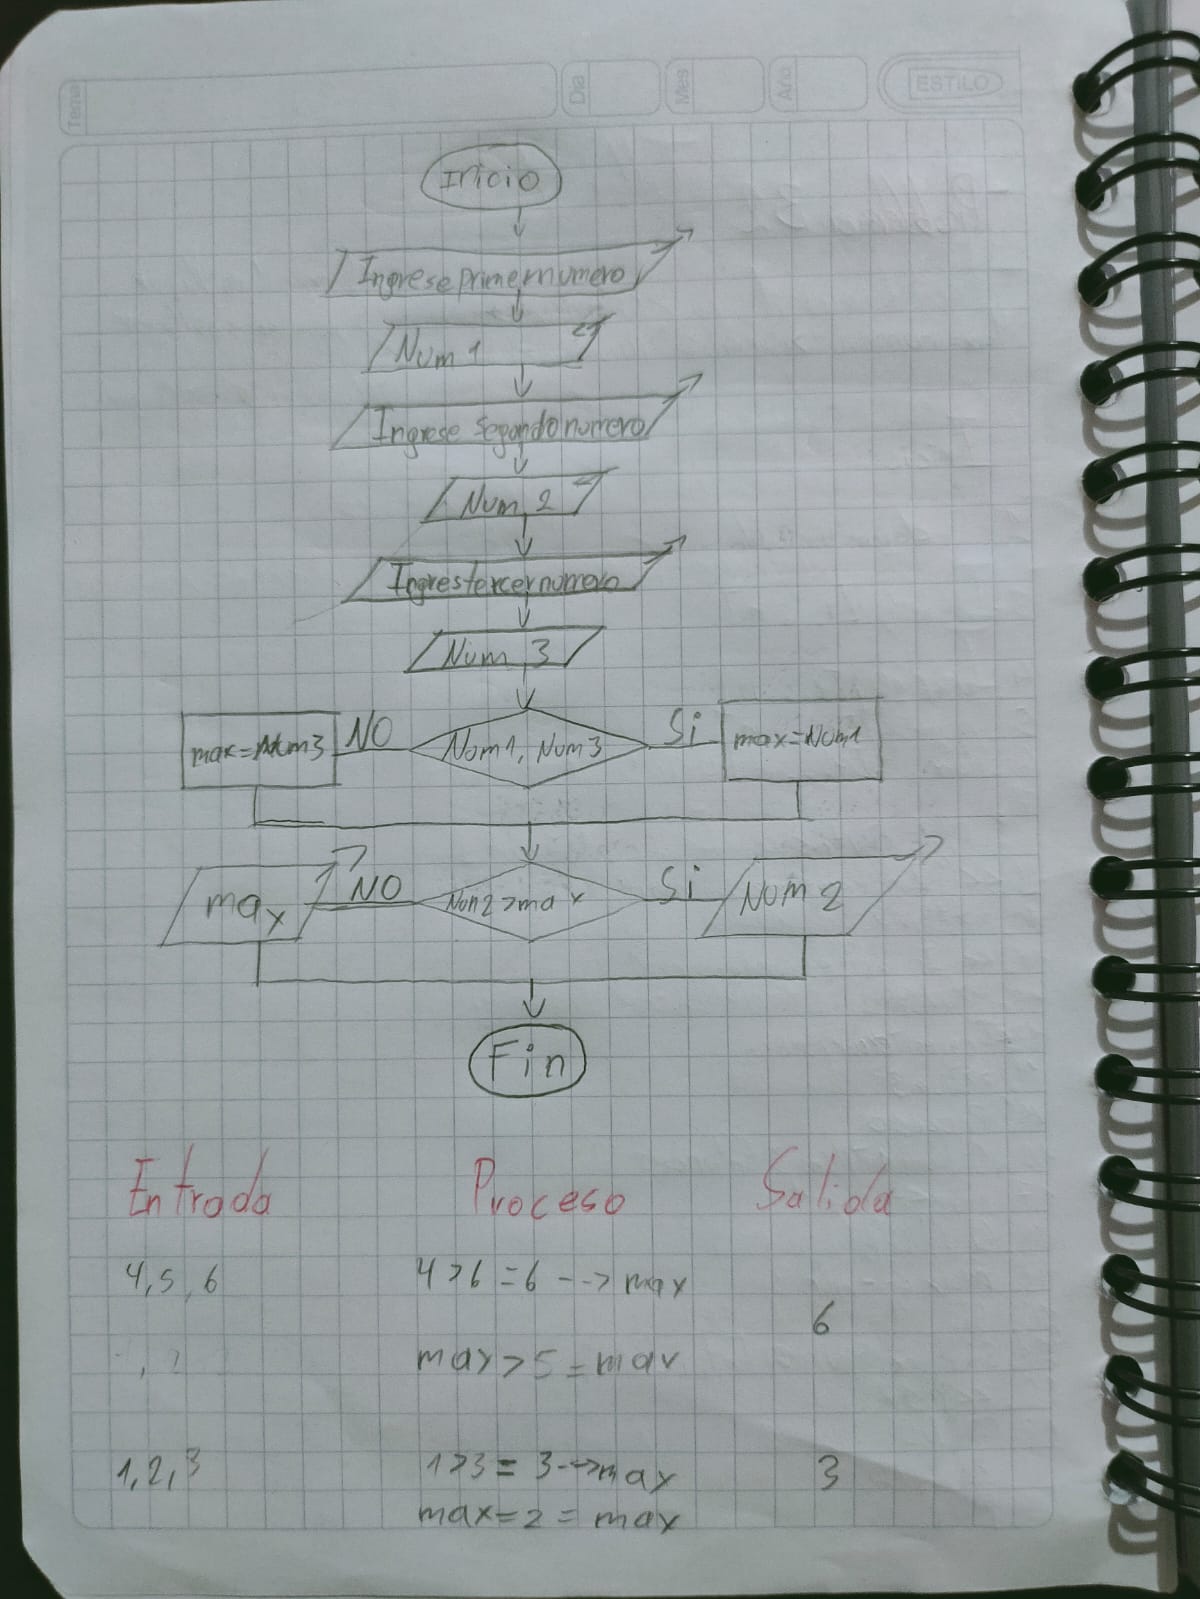 Tema Dia Mes Año ESTILO
Inicio
Ingrese primer numero
Num 1
Ingrese segundo numero
Num 2
Ingres tercer numero
Num 3
max=Num3 NO Num1, Num3 Si max=Num1
max NO Num2>max Si Num 2
Fin
Entrada Proceso Salida
4,5,6 4>6=6--> max
6
max>5=max
1,2,3 1>3=3-->max 3
max=2=max